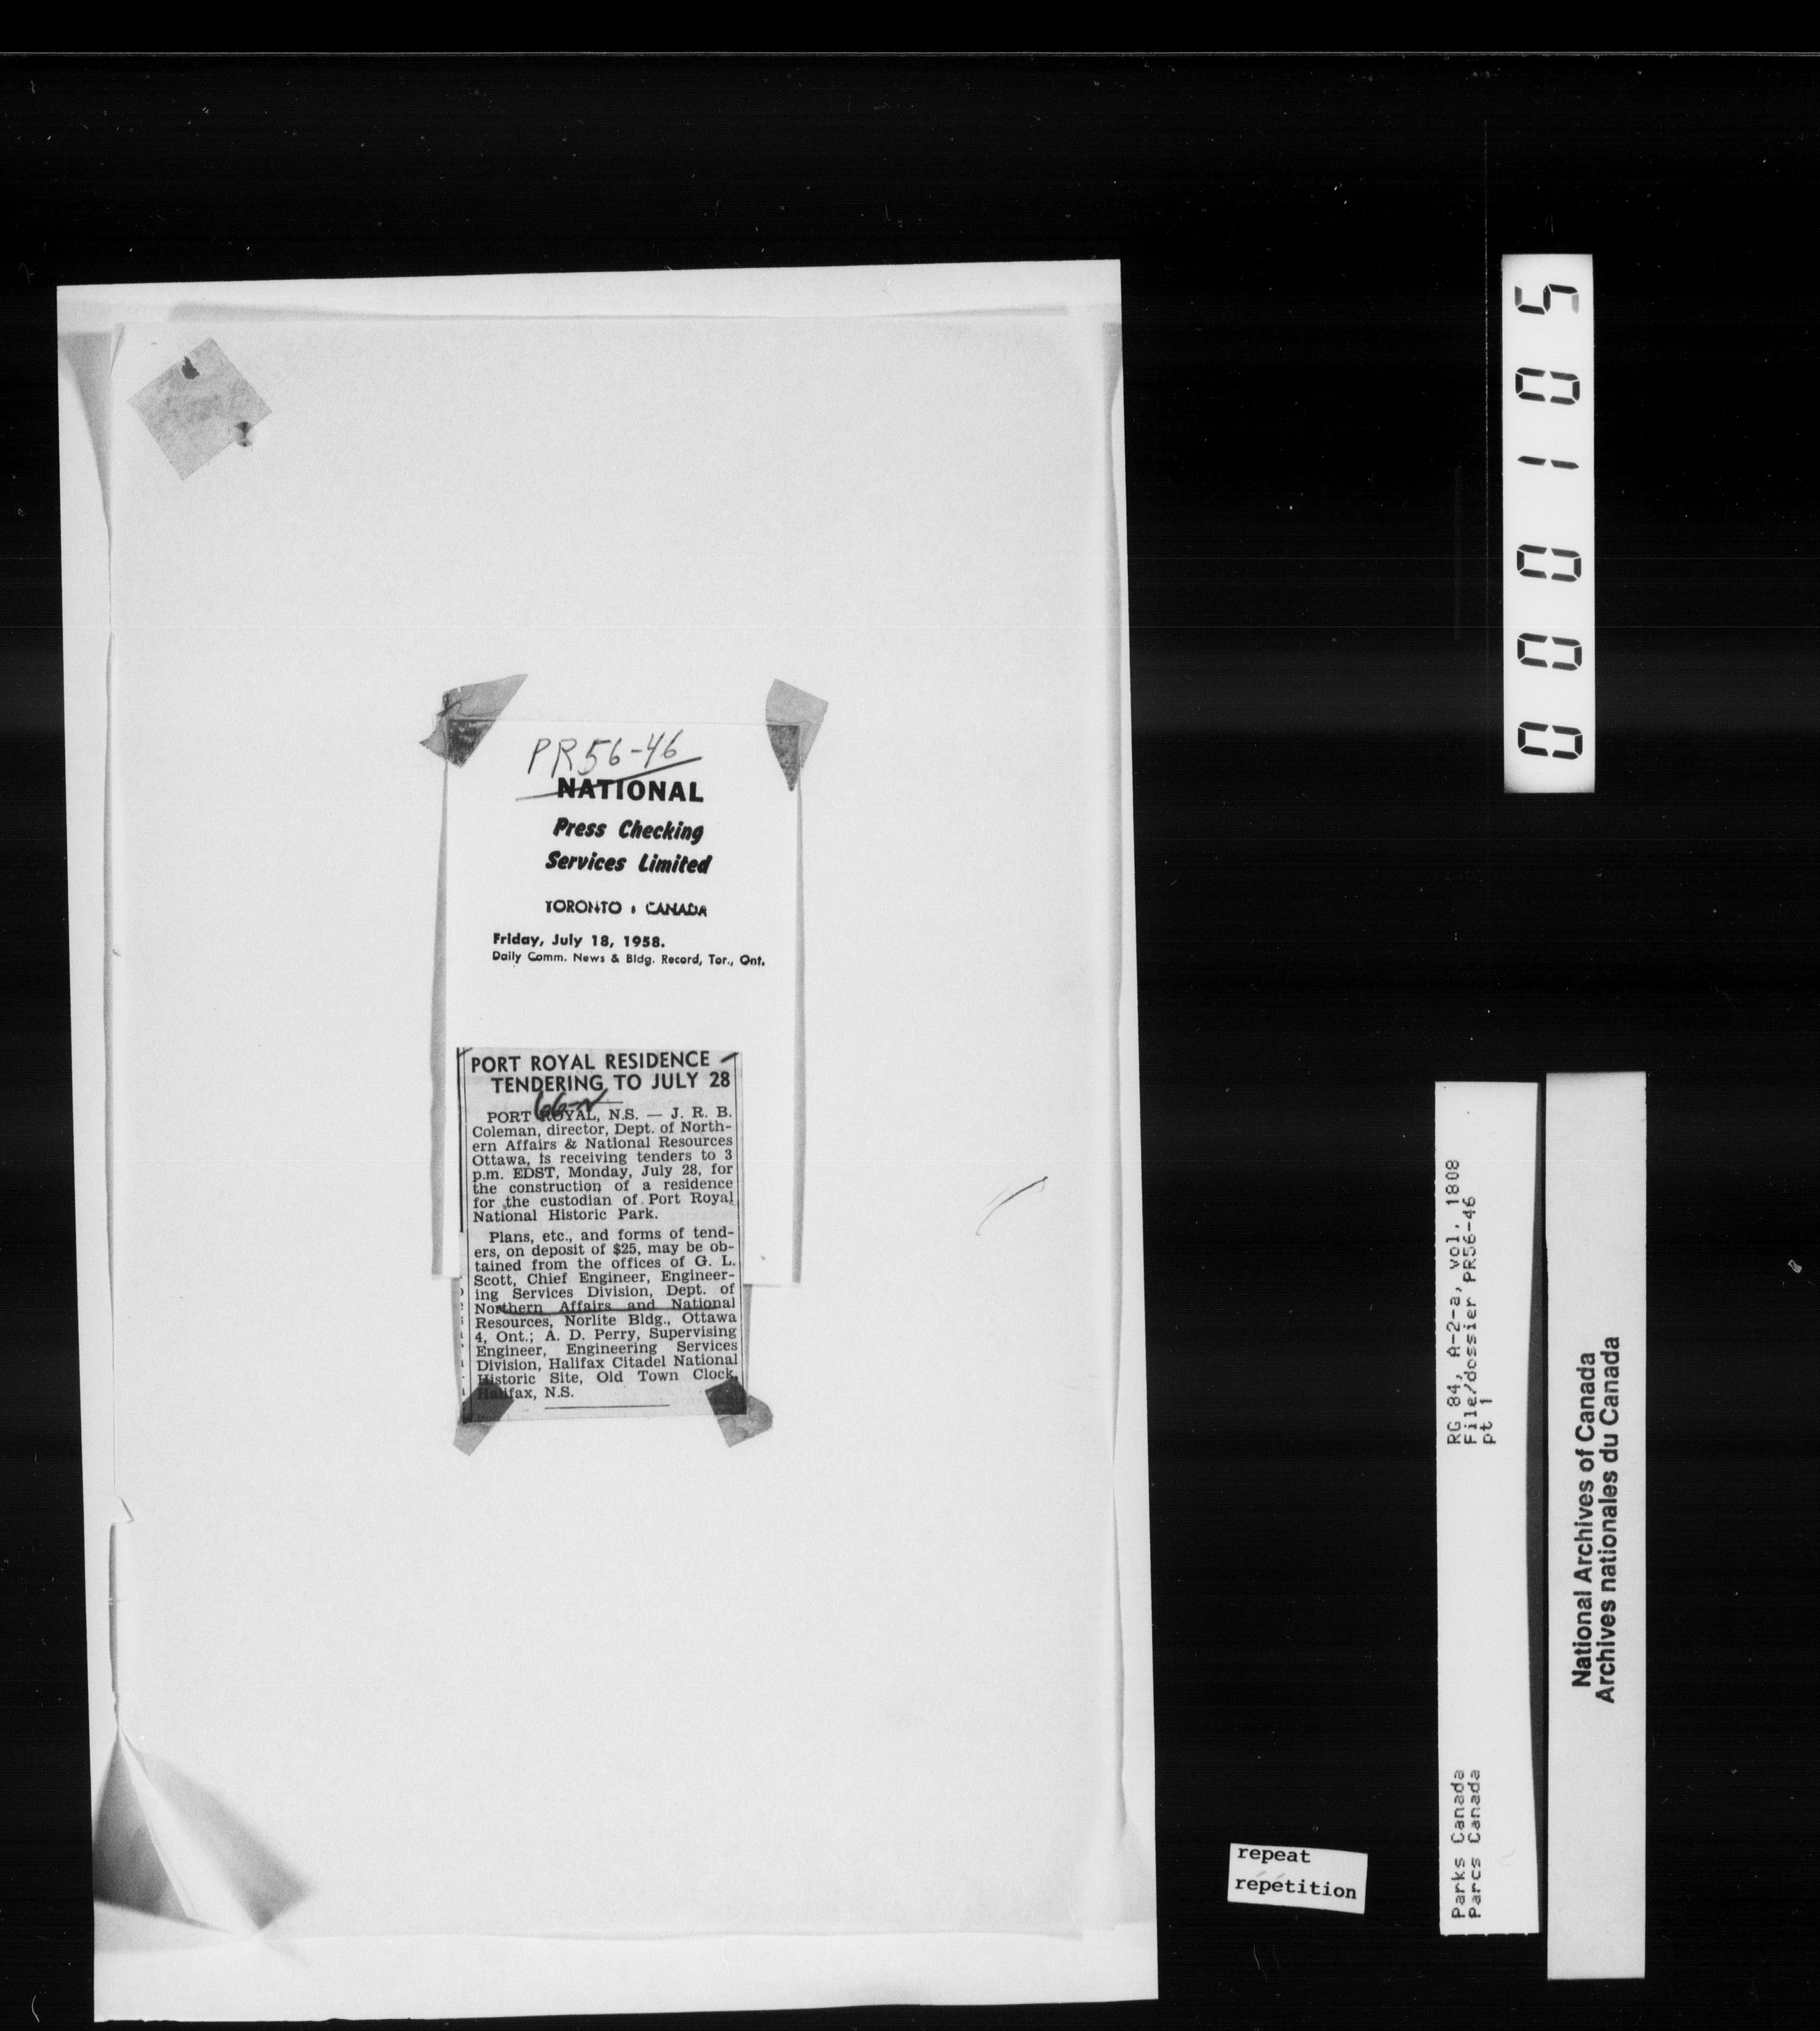 PR56-46
NATIONAL
Press Checking
Services Limited
TORONTO • CANADA
Friday, July 18, 1958.
Daily Comm. News & Bldg. Record, Tor., Ont.
PORT ROYAL RESIDENCE
TENDERING TO JULY 28
PORT ROYAL, N.S. — J. R. B.
Coleman, director, Dept. of North-
ern Affairs & National Resources
Ottawa, is receiving tenders to 3
p.m. EDST, Monday, July 28, for
the construction of a residence
for the custodian of Port Royal
National Historic Park.
Plans, etc., and forms of tend-
ers, on deposit of $25, may be ob-
tained from the offices of G. L.
Scott, Chief Engineer, Engineer-
ing Services Division, Dept. of
Northern Affairs and National
Resources, Norlite Bldg., Ottawa
4, Ont.; A. D. Perry, Supervising
Engineer, Engineering Services
Division, Halifax Citadel National
Historic Site, Old Town Clock,
Halifax, N.S.
000105
RG 84, A-2-a, vol. 1808
File/dossier PR56-46
pt 1
Parks Canada
Parcs Canada
National Archives of Canada
Archives nationales du Canada
repeat
répétition